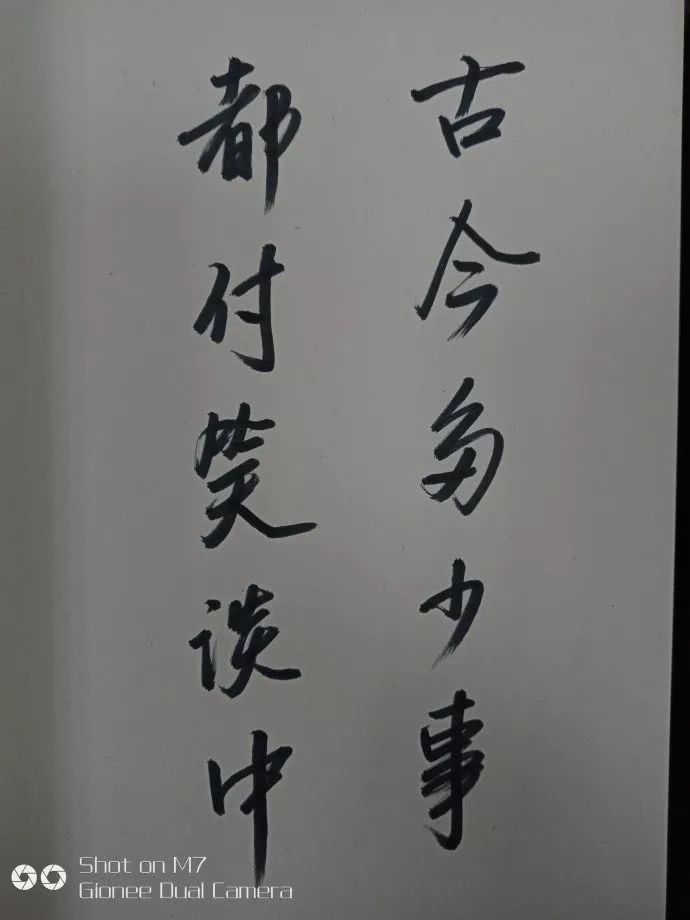 古今多少事
都付笑谈中
Shot on M7
Gionee Dual Camera